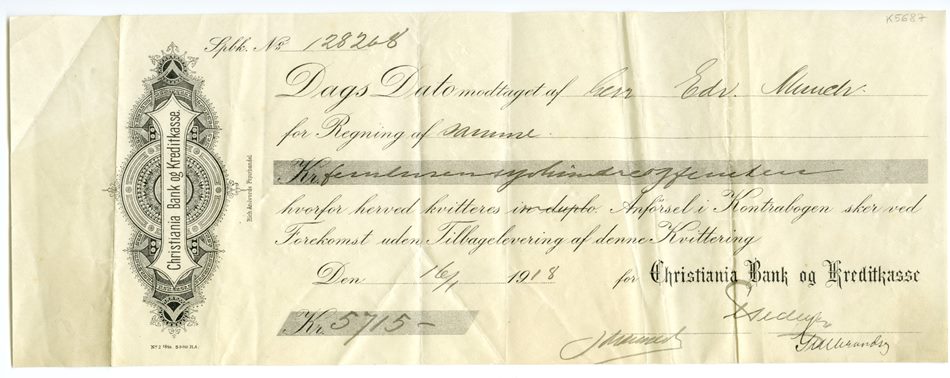 K5687
Spbk. No 128268
Dags Dato modtaget af herr Edv. Munch.
for Regning af samme.
Kr. femtusensyvhundreogfemten
hvorfor herved kvitteres in duplo. Anförsel i Kontrabogen sker ved
Forekomst uden Tilbagelevering af denne Kvittering
Den 16/1 1918 for Christiania Bank og Kreditkasse
Kr. 5715-
Christiania Bank og Kreditkasse.